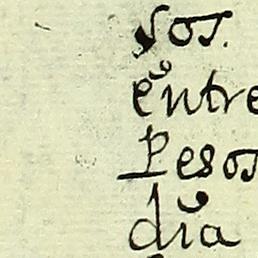 sos.
entre
Pesos
dia